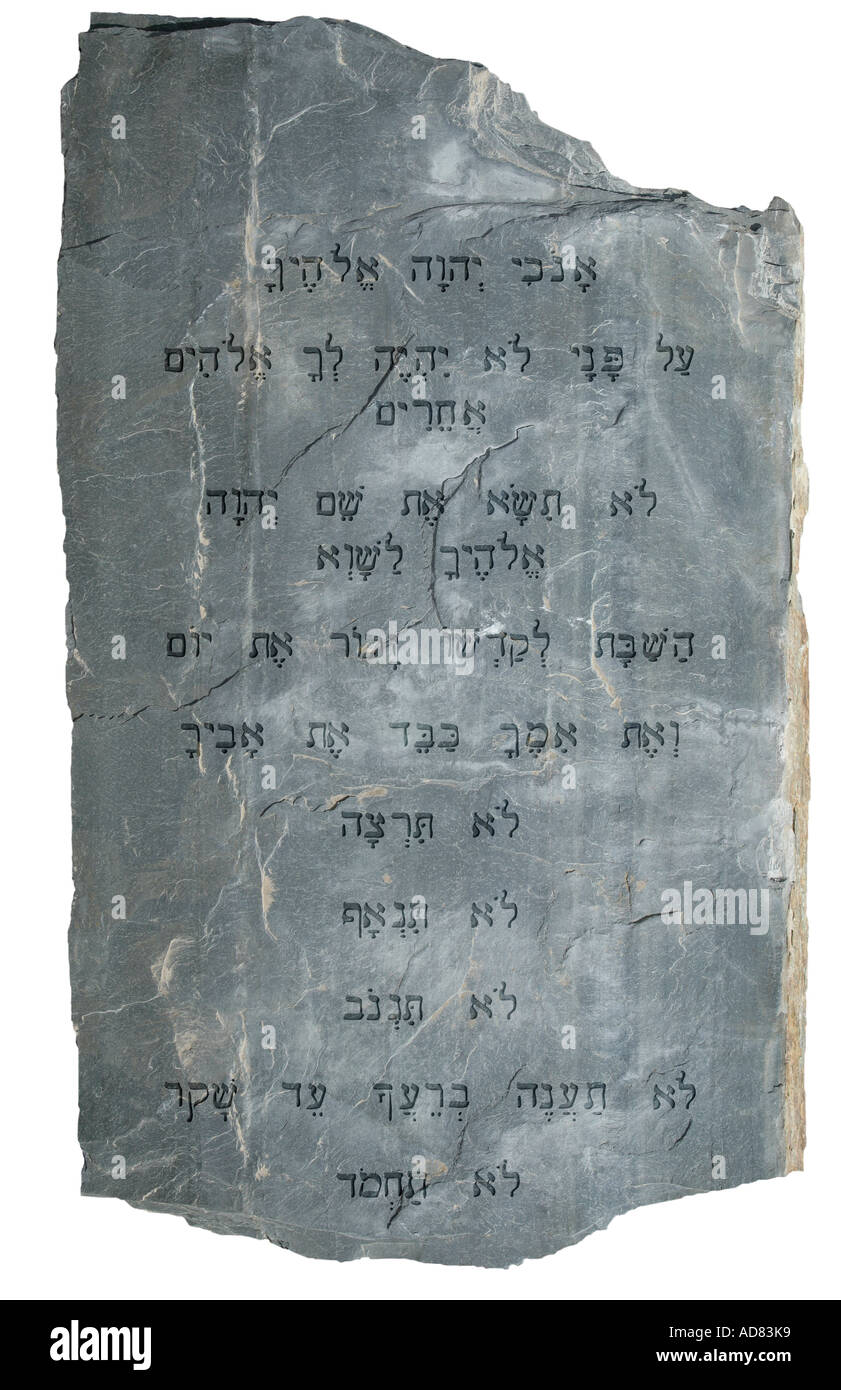 אָנֹכִי יְהוָה אֱלֹהֶיךָ
עַל פָּנָי לֹא יִהְיֶה לְךָ אֱלֹהִים
אֲחֵרִים
לֹא תִשָּׂא אֶת שֵׁם יְהוָה
אֱלֹהֶיךָ לַשָּׁוְא
הַשַּׁבָּת לְקַדְּשׁוֹ אֶת יוֹם
וְאֶת אִמֶּךָ כַּבֵּד אֶת אָבִיךָ
לֹא תִּרְצָה
לֹא תִּנְאָף
לֹא תִּגְנֹב
לֹא תַעֲנֶה בְרֵעֲךָ עֵד שָׁקֶר
לֹא תַחְמֹד
alamy
Image ID: AD83K9
www.alamy.com